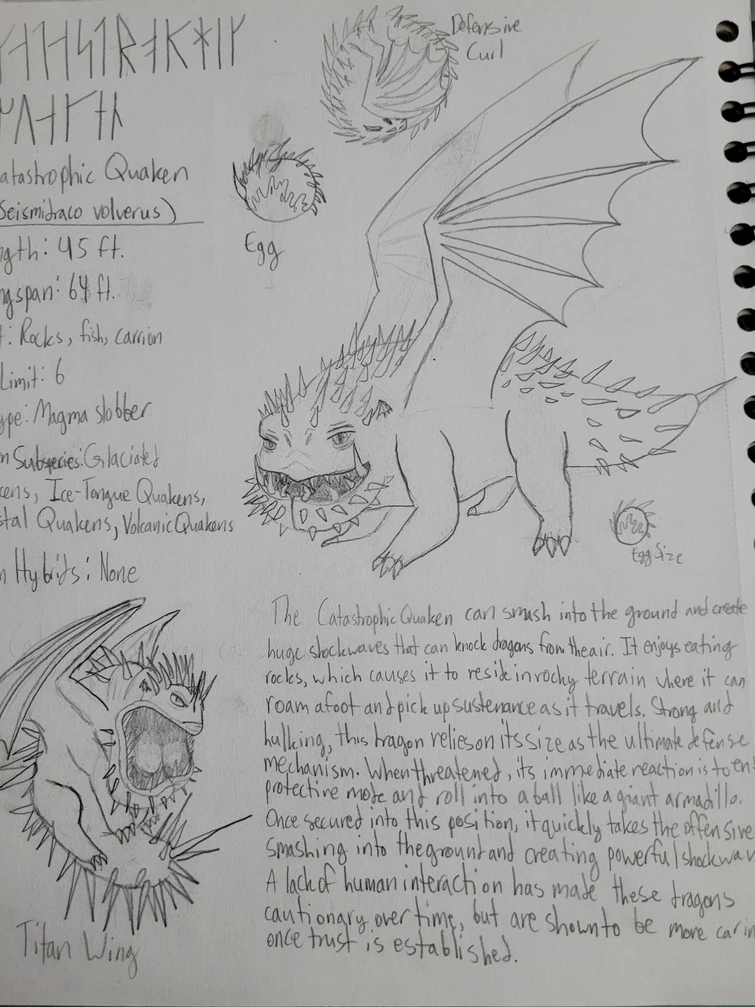 Defensive
Curl
atastrophic Quaken
Seismidraco volverus)
Egg
gth: 45 ft.
ngspan: 64 ft.
t: Rocks, fish, carrion
Limit: 6
ype: Magma slobber
n Subspecies: Glaciated
kens, Ice-Tongue Quakens,
stal Quakens, Volcanic Quakens
n Hybrids: None
Egg Size
The Catastrophic Quaken can smash into the ground and create
huge shockwaves that can knock dragons from the air. It enjoys eating
rocks, which causes it to reside in rocky terrain where it can
roam afoot and pick up sustenance as it travels. Strong and
hulking, this dragon relies on its size as the ultimate defense
mechanism. When threatened, its immediate reaction is to ent
protective mode and roll into a ball like a giant armadillo.
Once secured into this position, it quickly takes the offensive
smashing into the ground and creating powerful shockwav
A lack of human interaction has made these dragons
cautionary over time, but are shown to be more carin
once trust is established.
Titan Wing